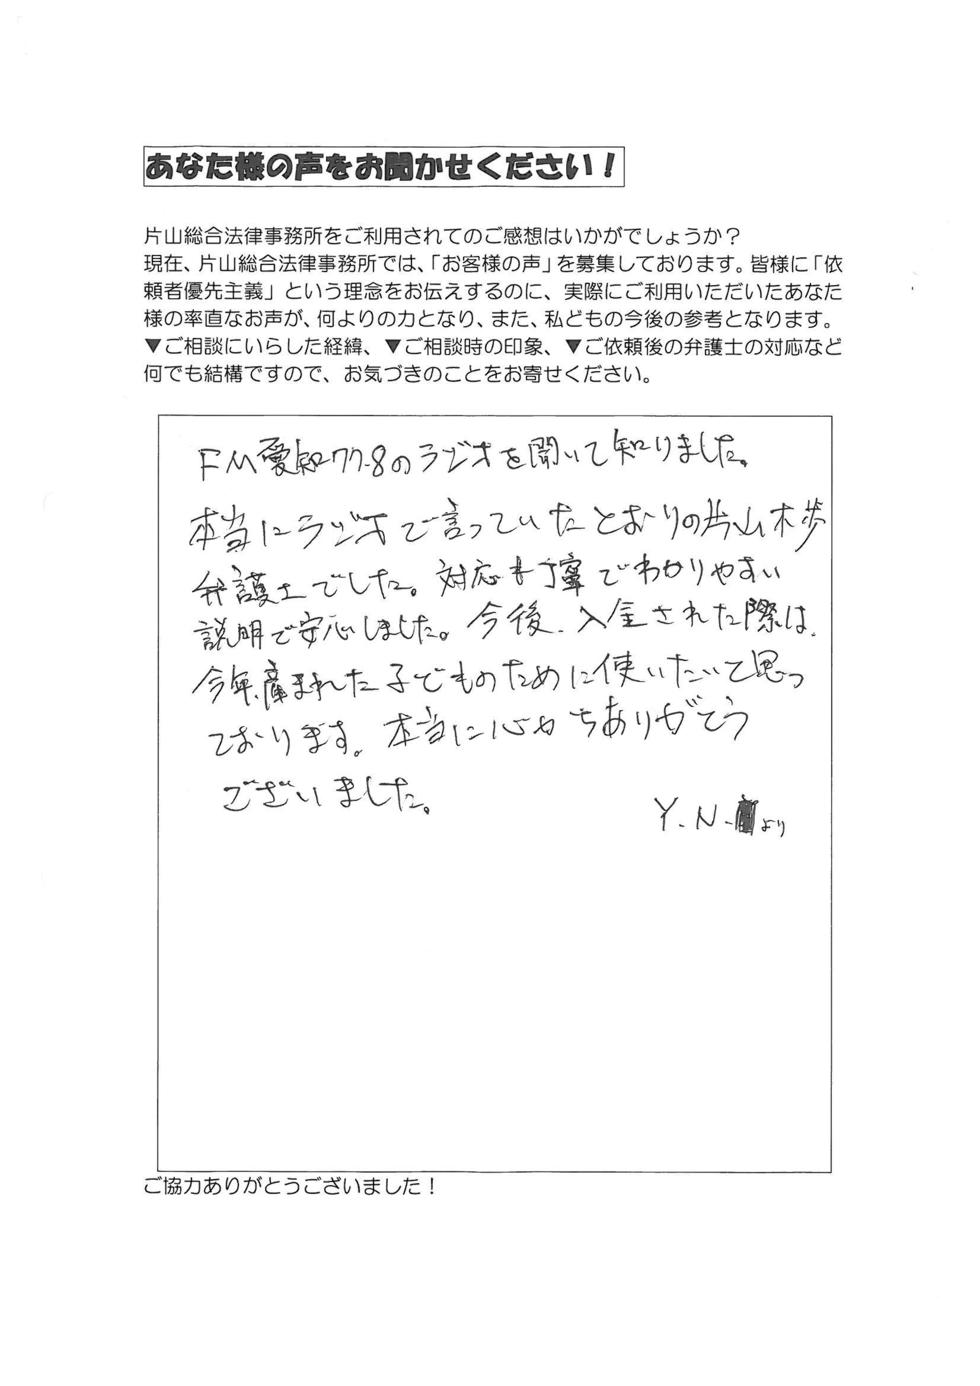 あなた様の声をお聞かせください！
片山総合法律事務所をご利用されてのご感想はいかがでしょうか？
現在、片山総合法律事務所では、「お客様の声」を募集しております。皆様に「依
頼者優先主義」という理念をお伝えするのに、実際にご利用いただいたあなた
様の率直なお声が、何よりの力となり、また、私どもの今後の参考となります。
▼ご相談にいらした経緯、▼ご相談時の印象、▼ご依頼後の弁護士の対応など
何でも結構ですので、お気づきのことをお寄せください。
FM愛知77.8のラジオを聞いて知りました。
本当にラジオで言っていたとおりの片山木歩
弁護士でした。対応も丁寧でわかりやすい
説明で安心しました。今後、入金された際は、
今年産まれた子どものために使いたいと思っ
ております。本当に心からありがとう
ございました。
Y.N.より
ご協力ありがとうございました！